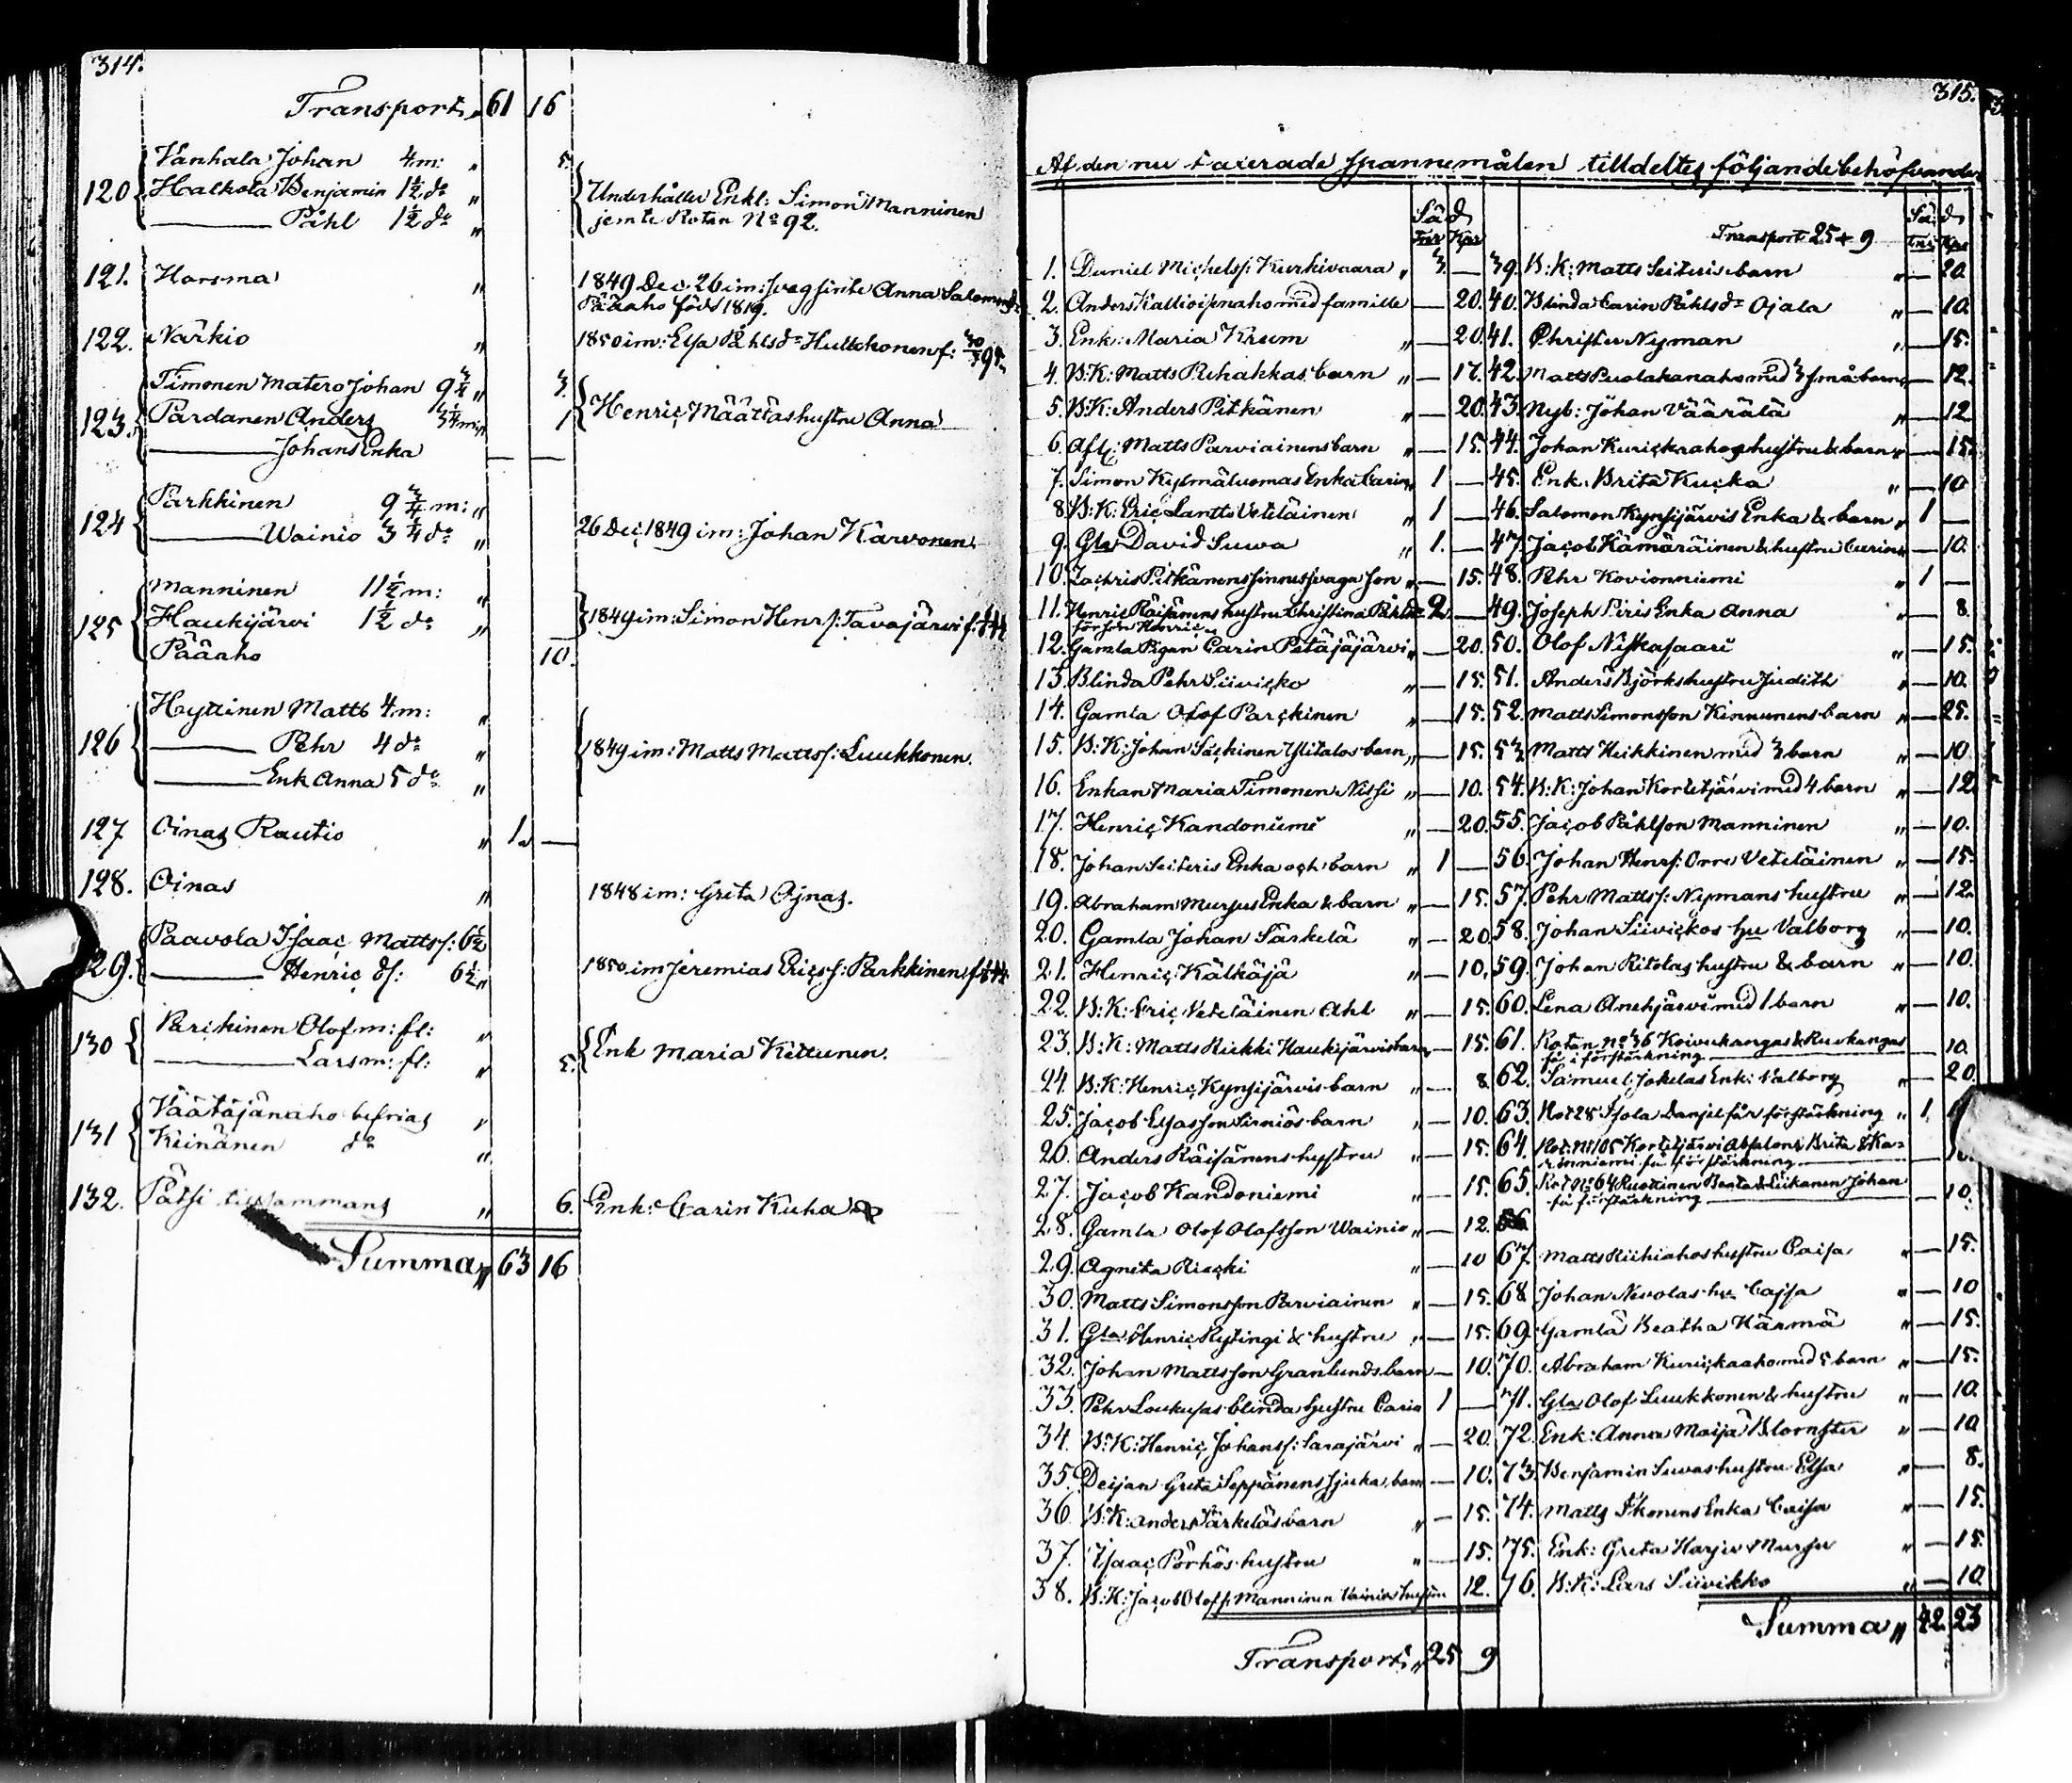 314.
Transport „ 61 16
Vanhala Johan 4 m: „ 5.
120 Halkola Benjamin 1½ do „ Underhåller Enkl: Simon Manninen
——— Påhl 1½ do „ jemte Roten No 92.
121. Horsma „ 1849 Dec. 26 im: Anna
Pääaho född 1819.
122. Närkio „ 1850 im: Elsa Påhlsdr Hultkonen f:
Timonen Matero Johan 9¾ „ 3.
123. Pardanen Anders 3¼ m: „ 1. Henric Määttas hustru Anna
——— Johans Enka — —
Parkkinen 9¾ m: „
124 ——— Wainio 3¼ do „ 26 Dec 1849 im: Johan Karvonen.
Manninen 11½ m: „
125 Haukijärvi 1½ do „ 1849 im: Simon Henr s: Tavajärvi
Pääaho 10.
Hyttinen Matts 4 m: „
126 ——— Pehr 4 do „ 1849 im: Matts Matts s: Luukkonen.
——— Enk Anna 5 do „
127 Oinas Rautio „ 1. —
128. Oinas „ 1848 im: Greta Ojnas.
Paavola Isaac Matts s: 6½
129. ——— Henric ds: 6½ „ 1850 im Jeremias Erics s: Parkkinen
Parkinen Olof m: fl: „
130 ——— Lars m: fl: „ 5. Enk Maria Kettunen.
131 Väätäjänaho befrias „
Keinänen do „
132. Pätsi tillsammans „ 6. Enk: Carin Kuha
Summa „ 63 16
315.
Af den nu taxerade spannemålen tilldeltes följande behöfvande
Säd
Tnr Kpr
1. Daniel Michels s: Kurkivaara „ 3. —
2. Anders Kallioisenaho med famille — 20.
3. Enk: Maria Krum „ — 20
4. B.K: Matts Rehakkas barn „ — 17.
5. B.K: Anders Pitkänen „ — 20
6. Afl: Matts Parviainens barn „ — 15.
7. Simon Kylmäluomas Enka Carin „ 1 —
8. B:K: Eric Lantto Veteläinen „ 1 —
9. Gla David Suwa „ 1. —
10. Zachris Pitkänens sinnessvaga son „ — 15.
11. Henric Räisänens hustru Christina Påhlsdr 2. —
för son Henric „
12. Gamla Pigan Carin Petäjäjärvi „ — 20
13. Blinda Pehr Siivicko „ — 15.
14. Gamla Olof Parckinen „ — 15.
15. B.K: Johan Säckinen Ylitalos barn „ — 15.
16. Enkan Maria Timonen Nissi „ — 10.
17. Henric Kandoniemi „ — 20
18. Johan Seiteris Enka och barn „ 1 —
19. Abraham Mursus Enka & barn „ — 15.
20. Gamla Johan Särkelä „ — 20
21. Henric Kälkäjä „ — 10,
22. B:K: Eric Veteläinen Ahl „ — 15.
23. B:K: Matts Riekki Haukijärvis barn „ — 15.
24. B:K: Henric Kynsijärvis barn „ — 8.
25. Jacob Elsasson Sirniös barn „ — 10.
26. Anders Räisänens hustru „ — 15.
27. Jacob Kandoniemi „ — 15.
28. Gamla Olof Olofsson Wainio „ — 12.
29. Agneta Riecki „ — 10
30. Matts Simonsson Parviainen „ — 15.
31. Gla Henric Rytingi & hustru „ — 15.
32. Johan Mattsson Granlunds barn — 10.
33. Pehr Loukusas blinda hustru Carin 1 —
34. B:K: Henric Johans s: Sarajärvi „ — 20.
35. Deijan Greta Seppänens sjuka barn — 10.
36. B:K: Anders Särkeläs barn „ — 15.
37. Isaac Pörhös hustru „ — 15.
38. B:K: Jacob Olofs s: Manninen Vainios hustru 12.
Transport „ 25 9
Säd
Transport 25 + 9 Tnr Kpr
39. B:K: Matts Seiteris barn „ — 20.
40. Blinda Carin Påhlsdr Ojala „ — 10.
41. Christer Nyman „ — 15.
42. Matts Puolakanaho med 3 små barn — 12.
43. Nyb: Johan Väärälä „ — 12
44. Johan Kurickaahos hustru & barn „ — 15.
45. Enk: Brita Kucka „ — 10
46. Salomon Kynsijärvis Enka & barn „ 1 —
47. Jacob Kämäräinen & hustru Carin — 10.
48. Pehr Kovionniemi „ 1 —
49. Joseph Piris Enka Anna „ — 8.
50. Olof Niskasaari „ — 15.
51. Anders Björks hustru Judith „ — 10.
52. Matts Simonsson Kinnunens barn „ — 25.
53 Matts Heikkinen med 3 barn „ — 10
54. B:K: Johan Kortetjärvi med 4 barn „ — 12
55. Jacob Påhlsson Manninen „ — 10.
56. Johan Henr s: Orre Veteläinen „ — 15.
57. Pehr Matts s: Nymans hustru „ — 12.
58. Johan Siivickos hu Valborg „ — 10.
59. Johan Ritolas hustru & barn „ — 10.
60. Lena Anehjärvi med 1 barn „ — 10.
61. Roten No 36 Koivukangas & Ruokangas
få i förstärkning — 10.
62. Samuel Jokelas Enk: Valborg „ — 20.
63. Rot 28 Isola Danjel får förstärkning „ 1.
64. Rot. No 105 Kortetjärvi Absalons Brita & Ka=
rinniemi få förstärkning
65. Rot No 64 Ruottinen Beata & Leikanen Johan
få förstärkning — 10.
67. Matts Riihiahos hustru Caisa „ — 15.
68 Johan Nevolas hu Cajsa „ — 10
69. Gamla Beatha Kärmä „ — 15.
70. Abraham Kurickaaho med 5 barn „ — 15.
71. Gla Olof Luukkonen & hustru „ — 10.
72. Enk: Anna Maija Blomster „ — 10
73. Benjamin Suvas hustru Elsa „ — 8.
74. Matts Ikonens Enka Caisa „ — 15.
75. Enk: Greta Harju Mursu „ — 15.
76. B:K: Lars Siivikko „ — 10
Summa „ 42. 23